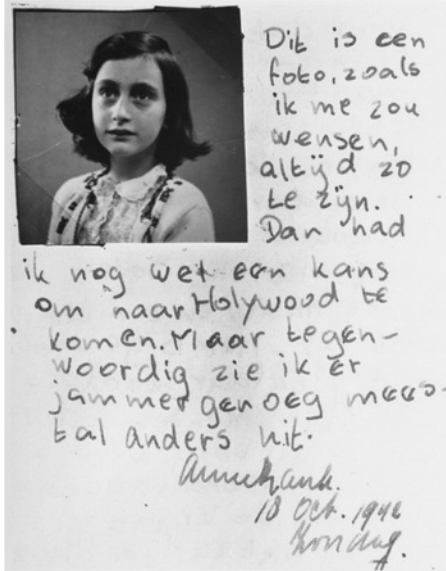 Dit is een
foto, zoals
ik me zou
wensen,
altijd zo
te zijn.
Dan had
ik nog wel een kans
om naar Holywood te
komen. Maar tegen-
woordig zie ik er
jammer genoeg mees-
tal anders uit.
Annefrank.
18 Oct. 1942
Zondag.